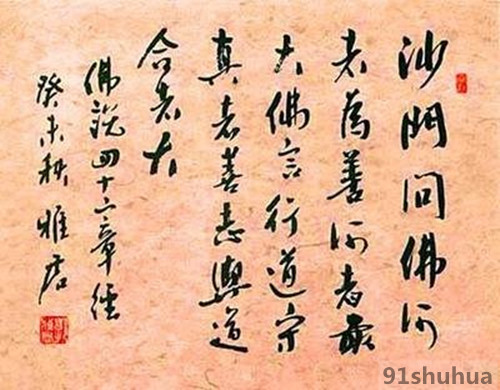 沙門問佛何
者為善何者最
大佛言行道守
真者善志與道
合者大
佛說四十二章經
癸未秋雅居
91shuhua